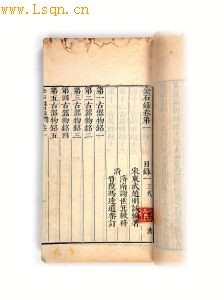 www.Lsqn.cn
金石錄卷第一
目錄一 三代
宋東武趙明誠
清
濟南謝世箕校梓
晉陵馬 訂
第一古器物銘一
第二古器物銘二
第三古器物銘三
第四古器物銘四
第五古器物銘五